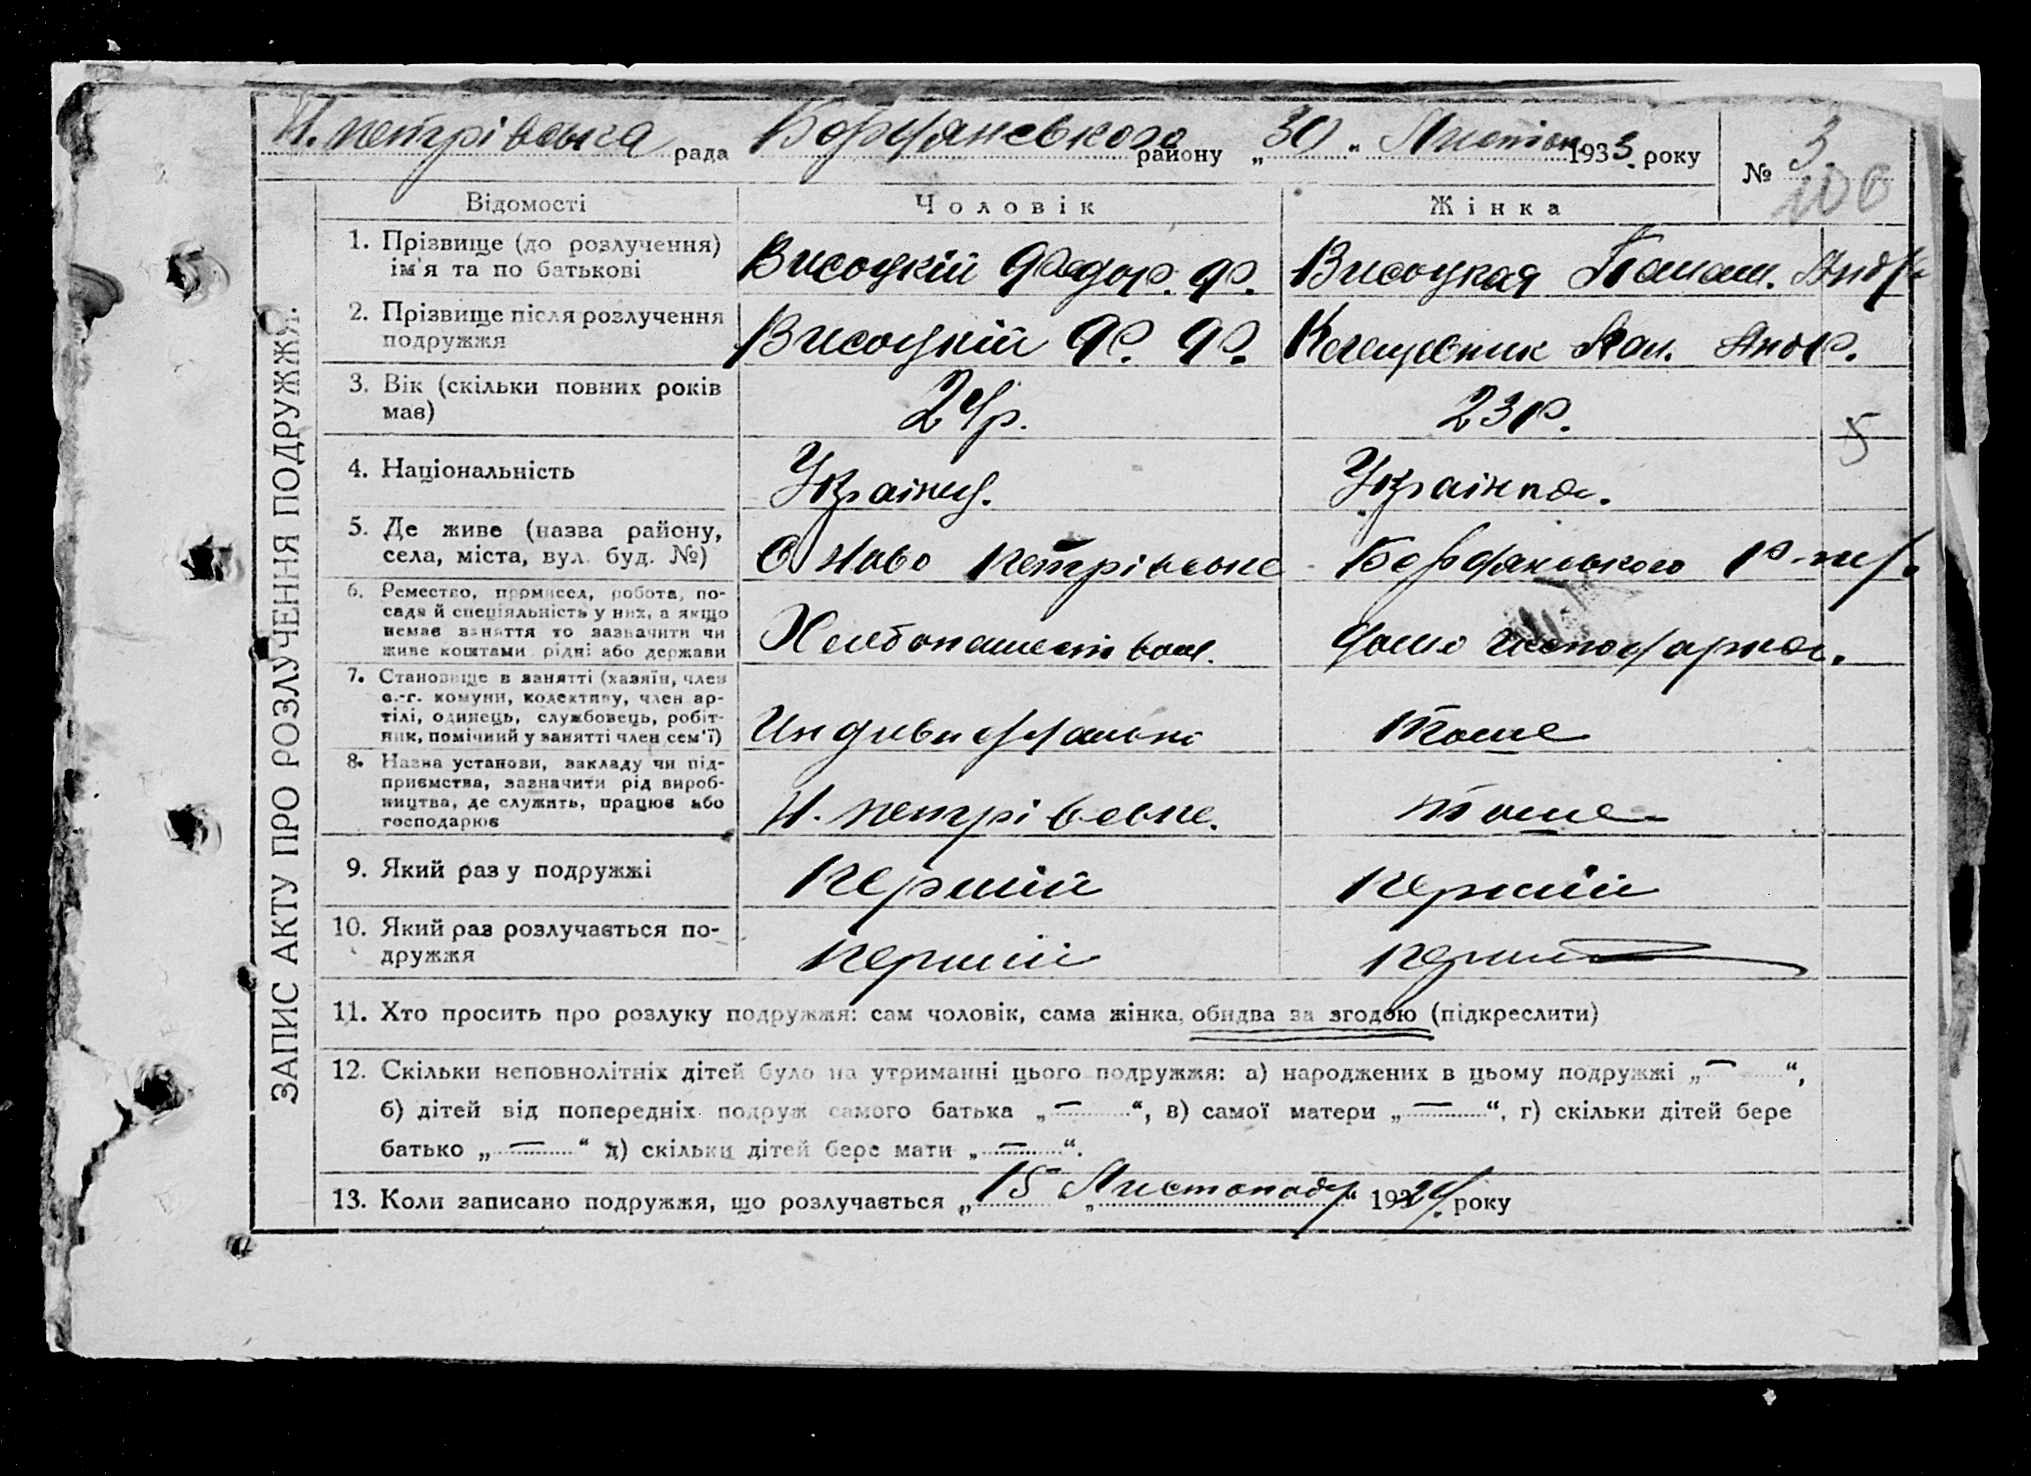 Н. петрівська рада Бердянського району „30“ Листоп. 1933 року № 3
100
Відомості Чоловік Жінка
ЗАПИС АКТУ ПРО РОЗЛУЧЕННЯ ПОДРУЖЖЯ.
1. Прізвище (до розлучення)
ім'я та по батькові
Висоцкій Федор. Ф. Висоцкая Палаш. Андр.
2. Прізвище після розлучення
подружжя
Висоцкій Ф. Ф. Пал. Андр.
3. Вік (скільки повних років
має)
24р. 23р.
5
4. Національність
Українц. Українка.
5. Де живе (назва району,
села, міста, вул. буд. №)
с Ново петрівське Бердянського р-ну.
6. Ремество, промисел, робота, по-
сада й спеціяльність у них, а якщо
немає заняття то зазначити чи
живе коштами рідні або держави
Хлебопашество. Домо господарка.
7. Становище в занятті (хазяїн, член
с.-г. комуни, колективу, член ар-
тілі, одинець, службовець, робіт-
ник, помічний у занятті член сем'ї)
тоже
8. Назва установи, закладу чи під-
приємства, зазначити рід вироб-
ництва, де служить, працює або
господарює
Н. петрівське. тоже
9. Який раз у подружжі
перший перший
10. Який раз розлучається по-
дружжя
перший перший
11. Хто просить про розлуку подружжя: сам чоловік, сама жінка, обидва за згодою (підкреслити)
12. Скільки неповнолітніх дітей було на утриманні цього подружжя: а) народжених в цьому подружжі „—“,
б) дітей від попередніх подруж самого батька „—“, в) самої матери „—“, г) скільки дітей бере
батько „—“ д) скільки дітей бере мати „—“.
13. Коли записано подружжя, що розлучається „15 „Листопаду“ 1929. року